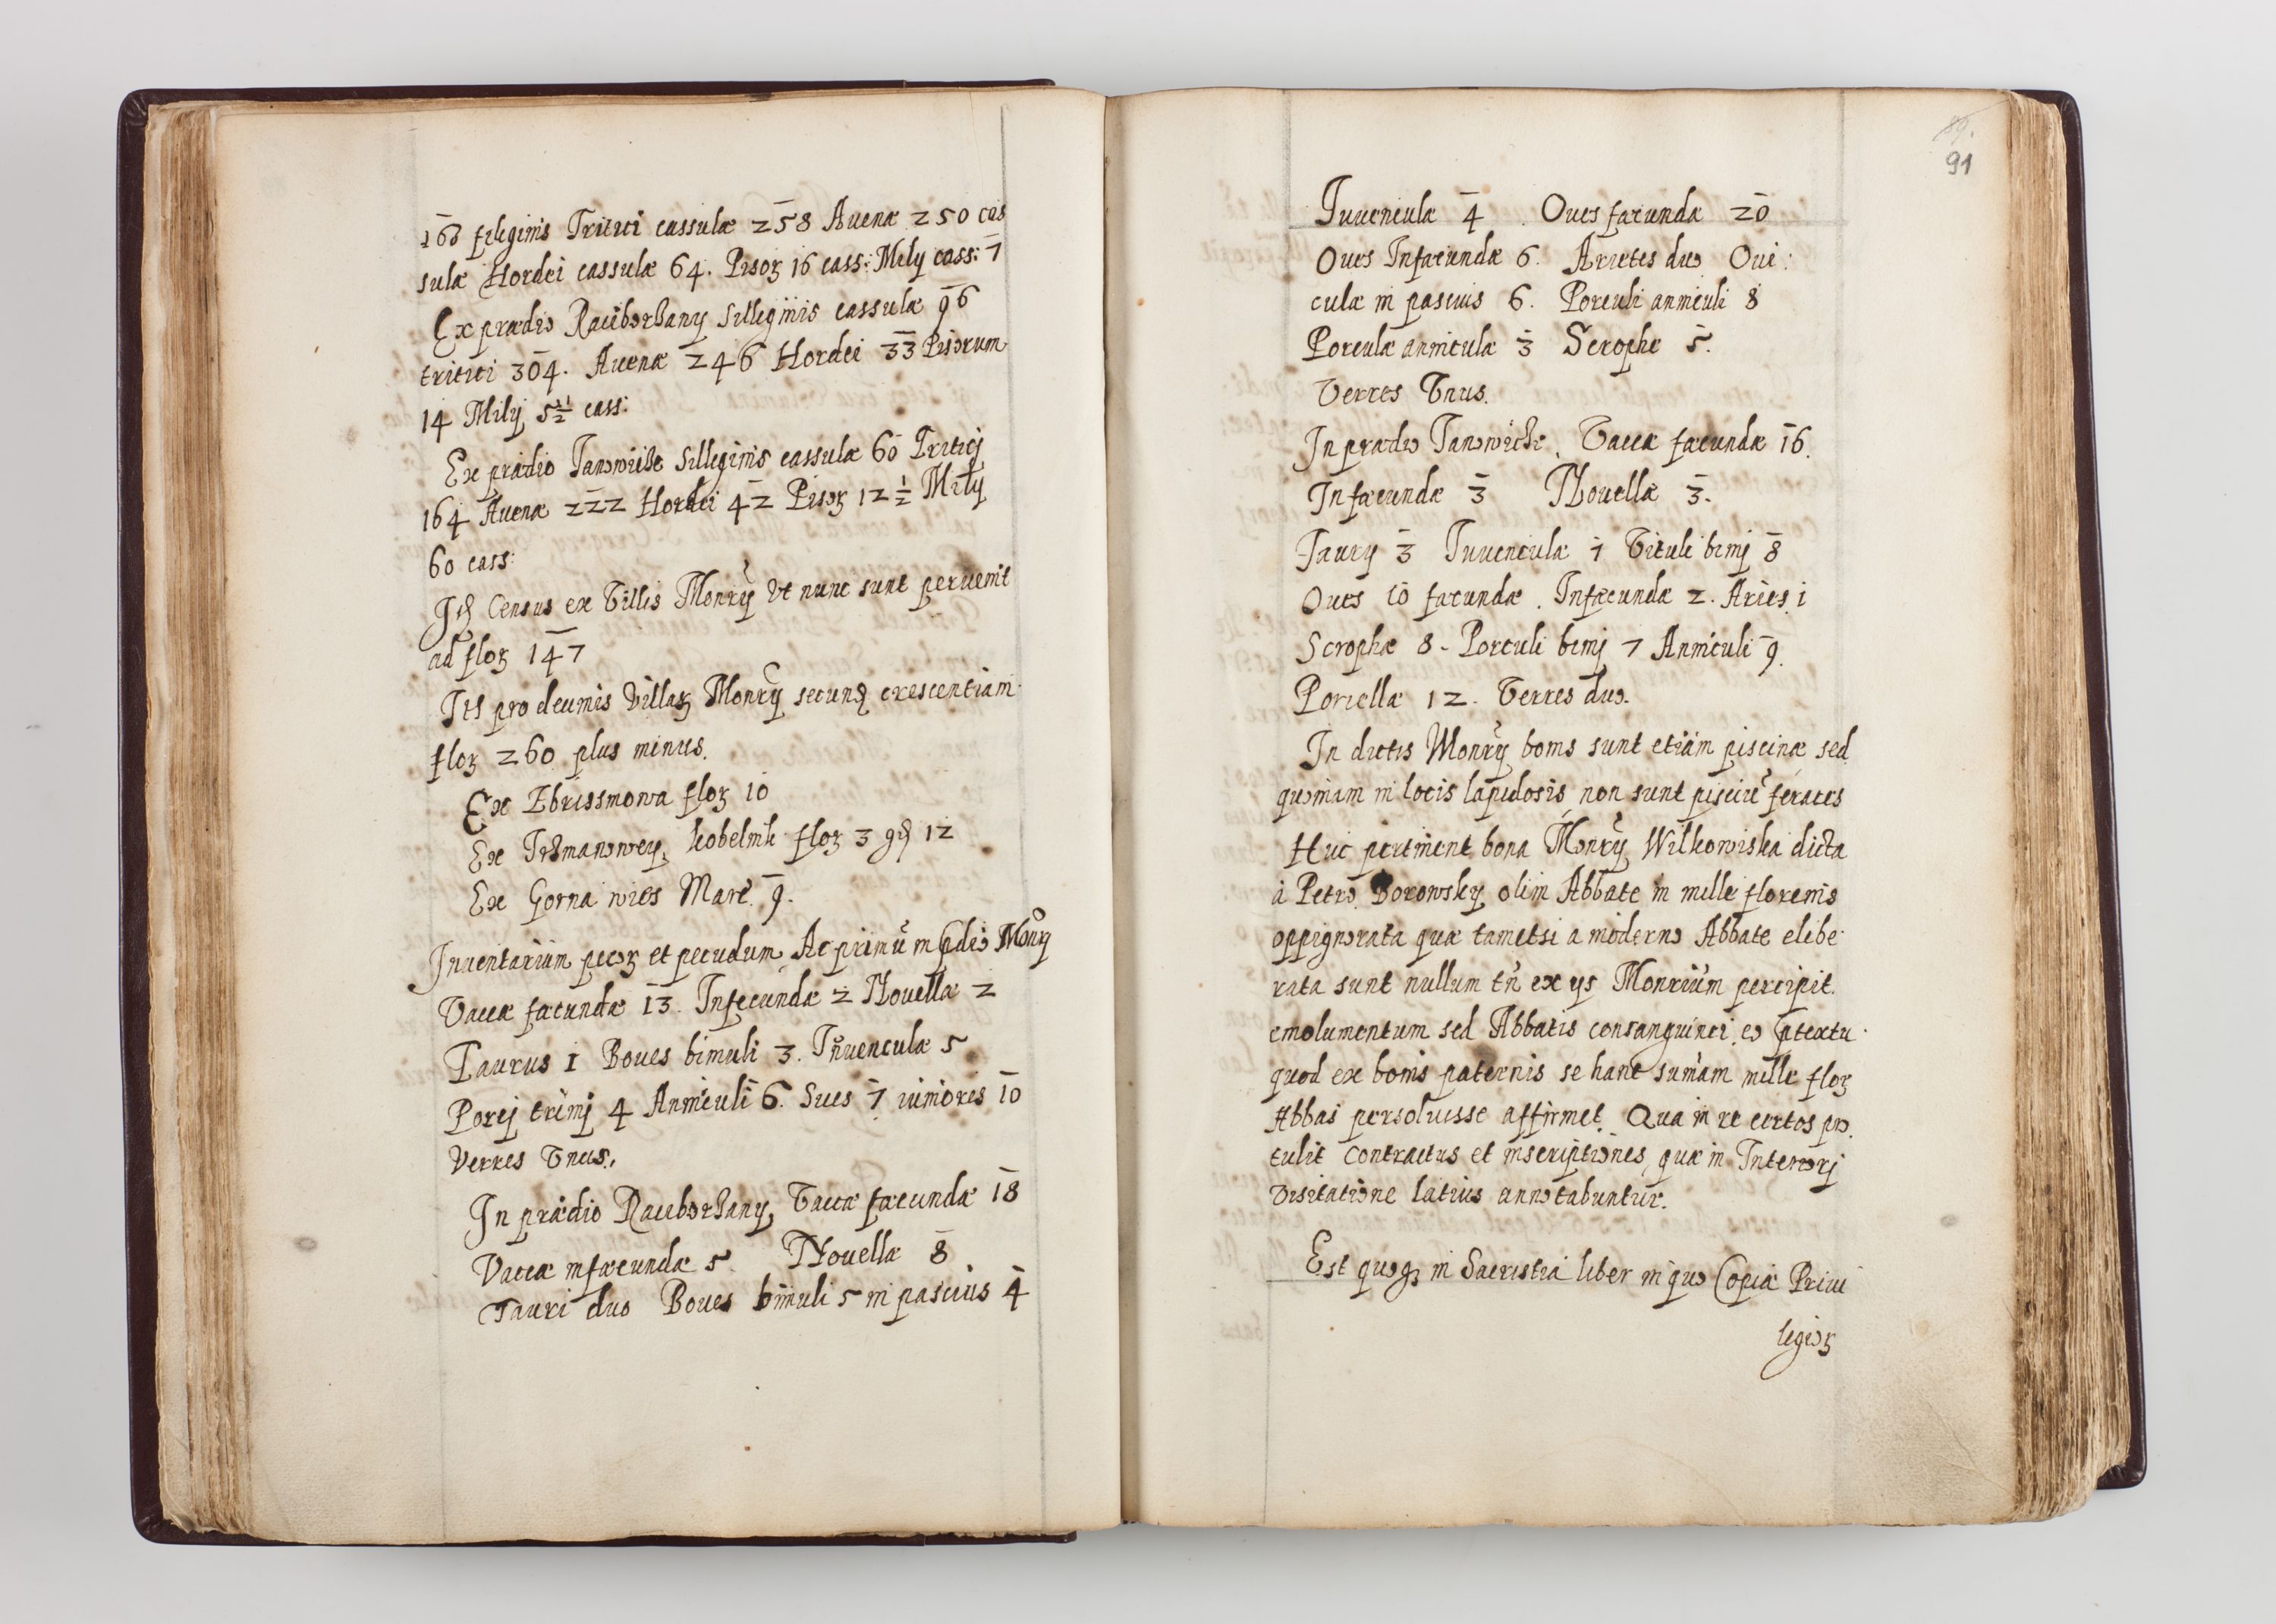 160 siliginis Tritici cassulæ 258 Auenæ 250 cas
sulæ Hordei cassulæ 64. Pisoꝝ 16 cass: Mily cass: 7
Ex prædio Raciborzany Silliginis cassulæ 96
tritici 304. Auenæ 246 Hordei 33 Pisorum
14 Mily 5 cass:
Ex prædio Janowicze Silliginis cassulæ 60 Tritici
164 Auenæ 222 Hordei 42 Pisoꝝ 12 ½ Mily
60 cass:
Census ex Villis Monrÿ Vt nunc sunt peruenit
ad floꝝ 147
pro decimis Villaꝝ Monrÿ crescentiam
floꝝ 260 plus minus.
Ex floꝝ 10
Ex kobelnik floꝝ 3 12
Ex Gorna wies Marc. 9.
Inuentarium pecoꝝ et pecudum Ac primū in Monrÿ
Vaccæ fæcundæ 13. Infecundæ 2 Nouellæ 2
Taurus 1 Boues bimuli 3. Iuuenculæ 5
Porcj trimj 4 Anniculi 6. Sues 7 iuniores 10
Verres Vnus.
In prædio Raciborzany, Vaccæ fæcundæ 18
Vaccæ infæcundæ 5. Nouellæ 8
Tauri duo Boues bimuli 5 in pascuis 4
91
Iuuenculæ 4 Oues fæcundæ 20
Oues Infæcundæ 6. Arietes duo Oui:
culæ in pascuis 6. Porculi anniculi 8
Porculæ anniculæ 3 Scrophe 5.
Verres Vnus.
In prædio Janowicze, Vaccæ fæcundæ 16.
Infæcundæ 3 Nouellæ 3.
Taury 3 Iuuenculæ 1 Vituli bimj 8
Oues 10 fæcundæ. Infæcundæ 2. Aries 1
Scrophæ 8 - Porculi bimj 7 Anniculi 9.
Porcellæ 12. Verres duo.
In dictis Monrÿ bonis sunt etiam piscinæ sed
quoniam in locis lapidosis non sunt pisciū feraces
Huc pertinent bona Monrÿ Wilkowiska dicta
à Petro Borowsky olim Abbate in mille florenis
oppignorata quæ tametsi a moderno Abbate elibe
rata sunt nullum tñ ex ys Monrium percipit.
emolumentum sed Abbatis consanguinei eo ptextu
quod ex bonis paternis se hanc sum̄am mille floꝝ
Abbas persoluisse affirmet. Qua in re certos pro
tulit contractus et inscriptiones quæ in Interiorj
Visitatione latius annotabuntur.
Est quoqꝫ in Sacristia liber in quo Copiæ Priui
legioꝝ